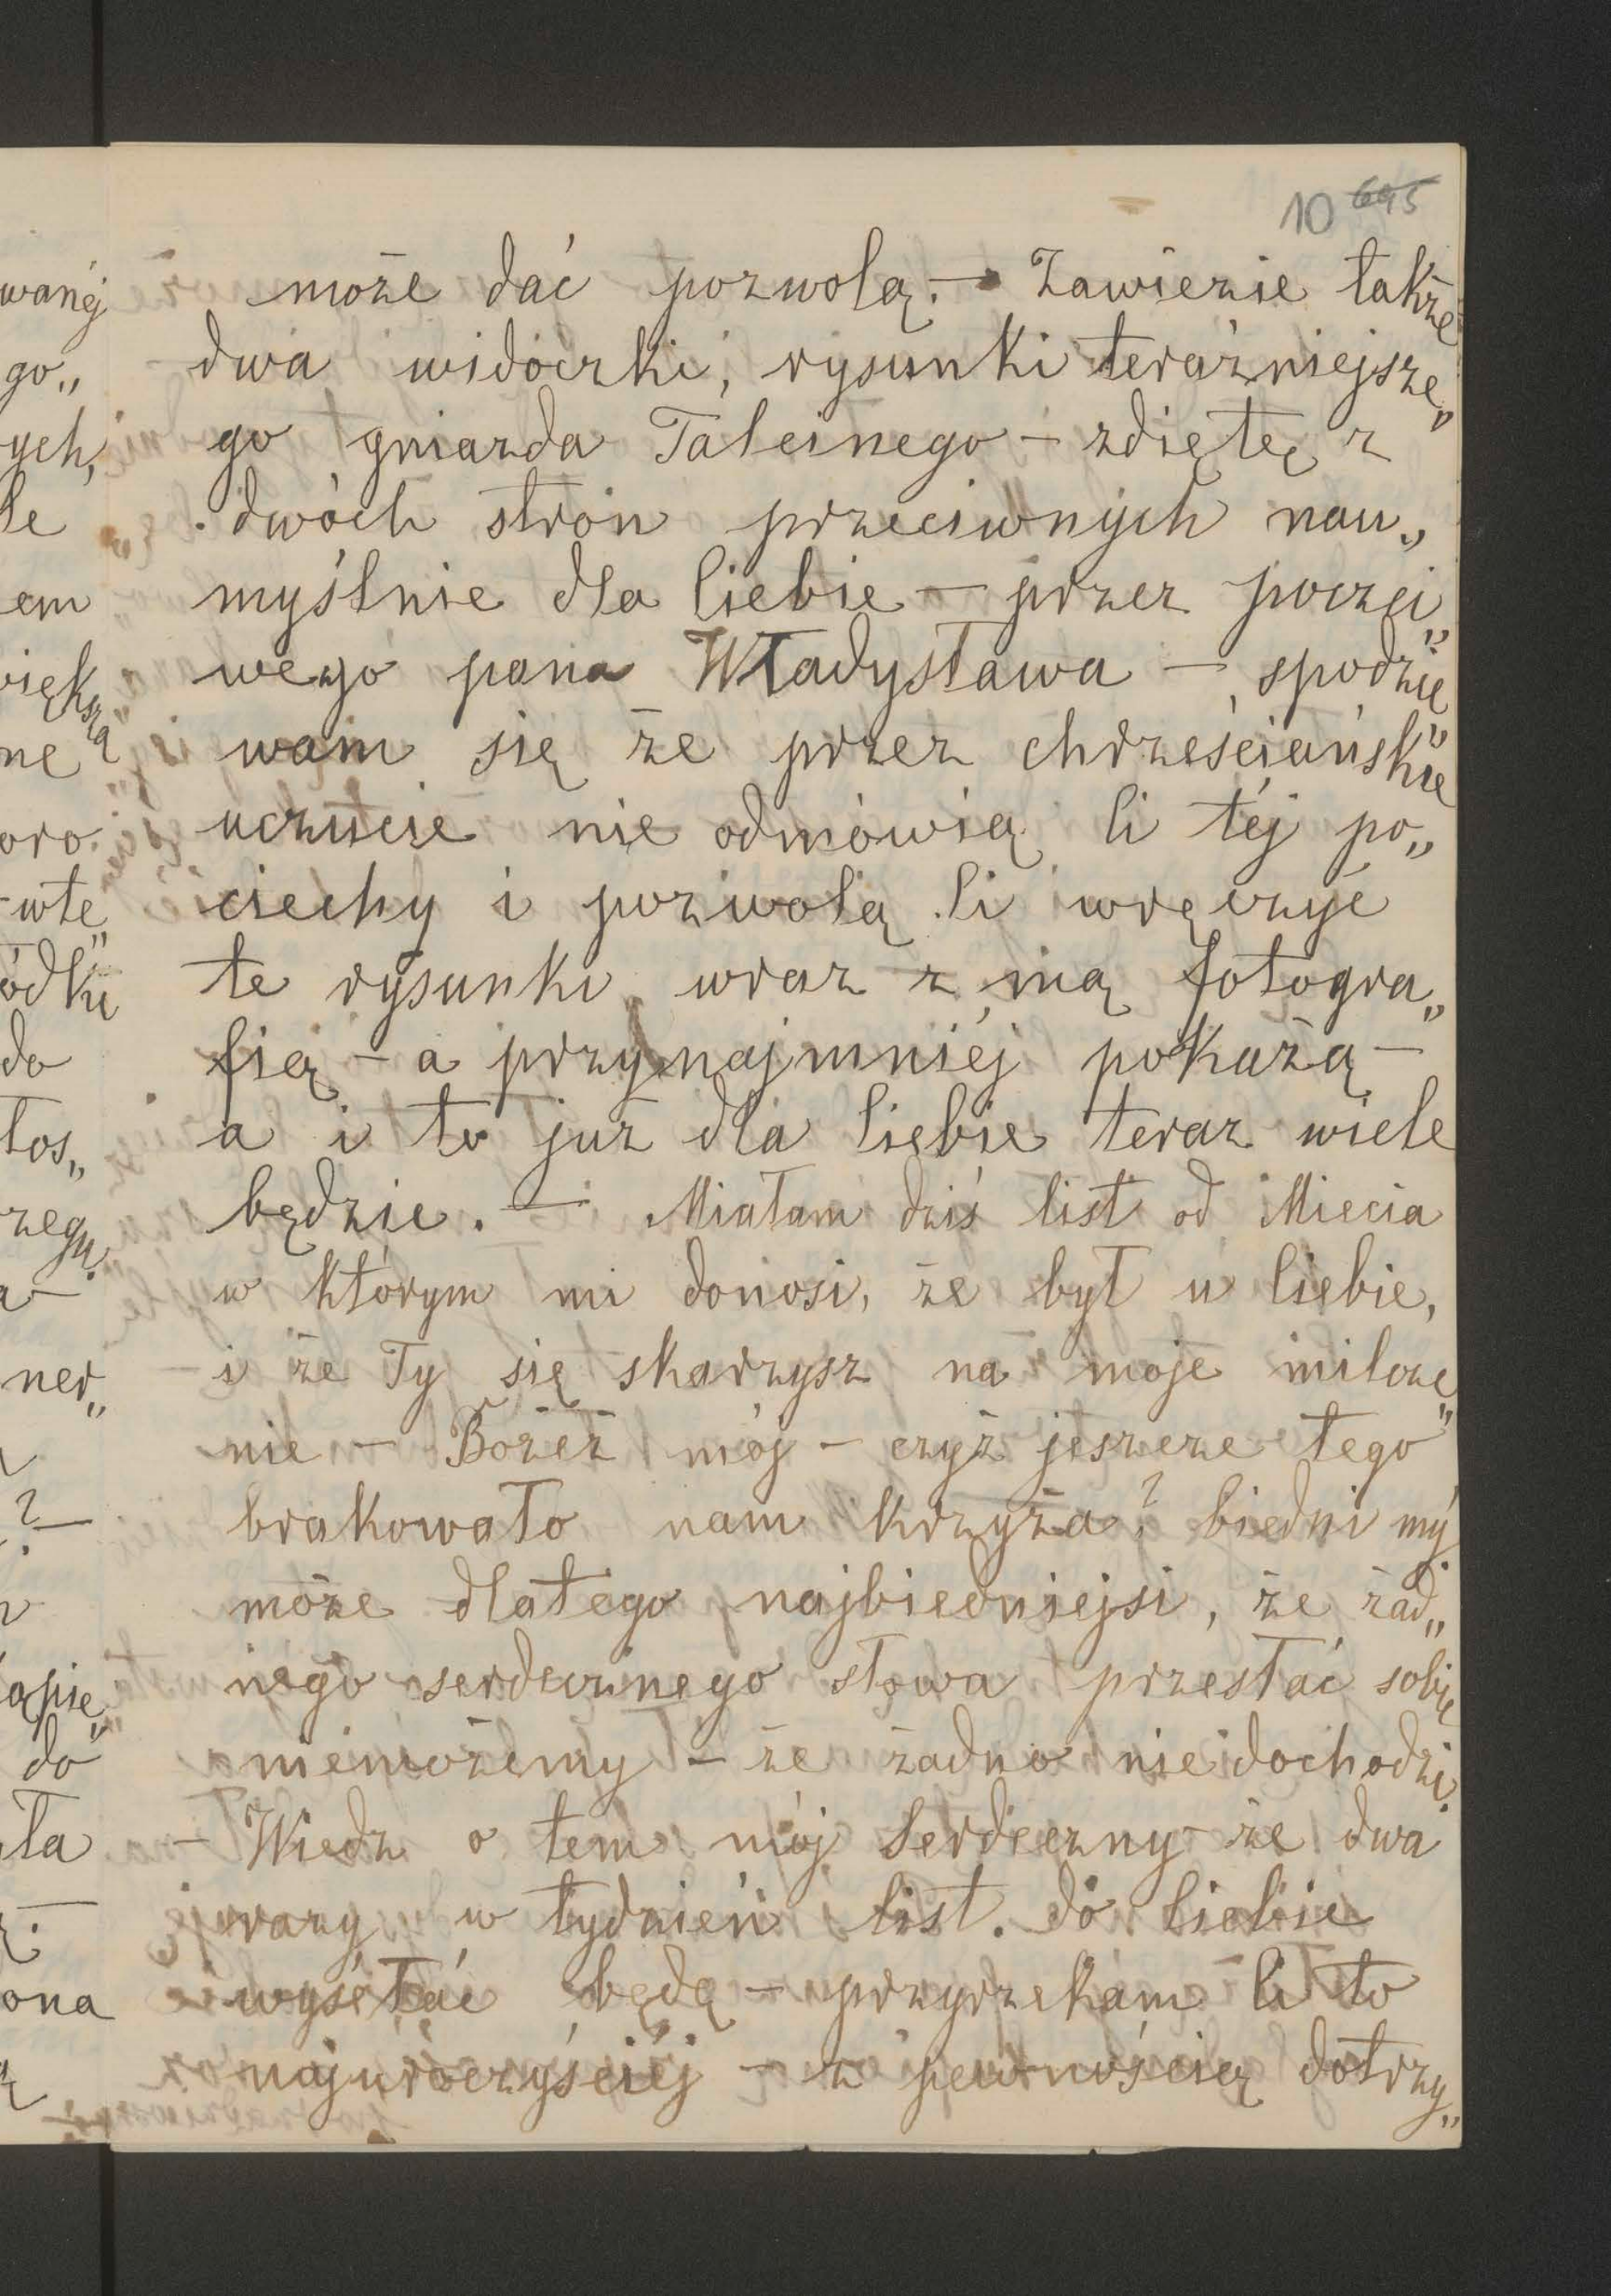 10 695
może dać pozwolą. — Zawiezie także
dwa widoczki, rysunki teraźniejsze„
go gniazda Taleinego — zdięte z
dwóch stron przeciwnych nau„
myślnie dla Ciebie — przez poczci„
wego pana Władysława — spodzie„
wam się że przez chrześciańskie
uczucie nie odmówią Ci téj po„
ciechy i pozwolą Ci wręczyć
te rysunki wraz z mą fotogra„
fią — a przynajmniéj pokażą —
a i to już dla Ciebie teraz wiele
będzie. — Miałam dziś list od Miecia
w którym mi donosi, że był u Ciebie,
i że Ty się skarzysz na moje milcze„
nie — Bożeż mój — czyż jeszcze tego
brakowało nam krzyża? biedni my
może dlatego najbiedniejsi, że żad„
nego serdecznego słowa przesłać sobie
niemożemy — że żadno niedochodzi.
— Wiedz o tem mój Serdeczny że dwa
razy w tydzień list. do Ciebie
wyséłać będę — przyrzekam Ci to
najuroczyściéj — z pewnością dotrzy„
wanéj
go„
ych,
le
em
większą
ne
oro.
wte„
ódku
do
łos„
zegu.
a —
ner„
? —
ąpie„
do
ła
ona